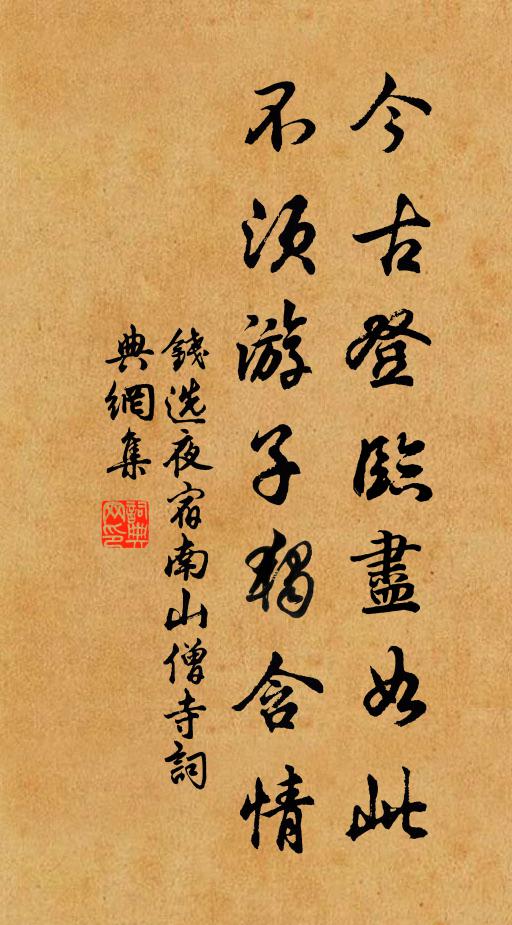 今古登臨盡如此
不須游子獨含情
錢選夜宿南山僧寺詞
典網集
詞典網印